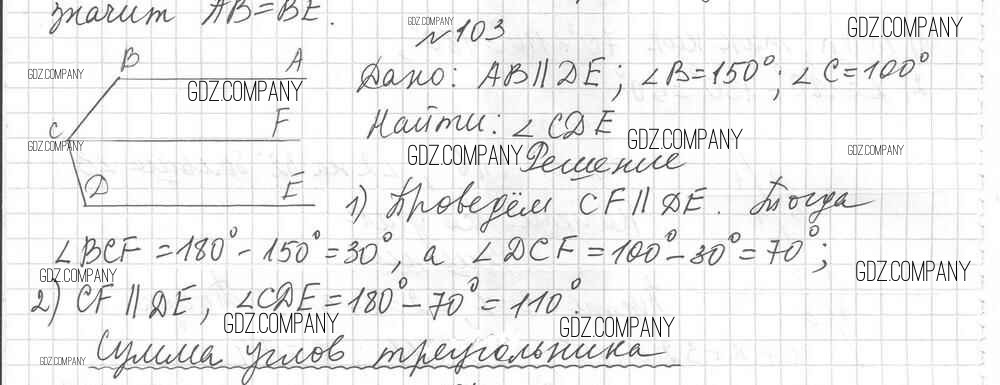 значит AB=BE.
GDZ.COMPANY
№103
GDZ.COMPANY
B A
GDZ.COMPANY
GDZ.COMPANY
Дано: AB∥DE; ∠B=150°; ∠C=100°
C F
GDZ.COMPANY
Найти: ∠CDE
GDZ.COMPANY
GDZ.COMPANY
Решение
GDZ.COMPANY
D E
1) Проведём CF∥DE. Тогда
∠BCF=180°-150°=30°, а ∠DCF=100°-30°=70°;
GDZ.COMPANY
GDZ.COMPANY
2) CF∥DE, ∠CDE=180°-70°=110°.
GDZ.COMPANY
GDZ.COMPANY
GDZ.COMPANY
Сумма углов треугольника